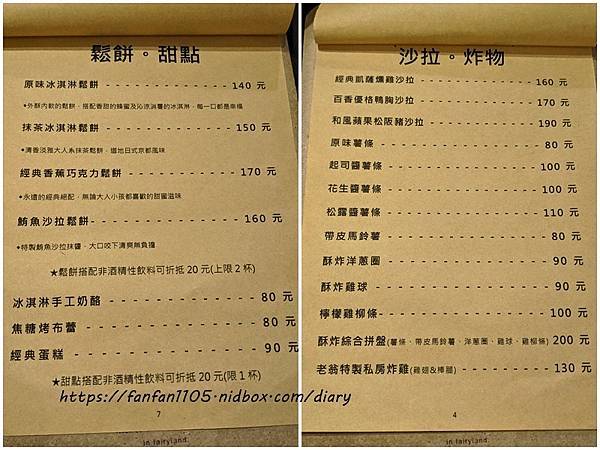 鬆餅。甜點
原味冰淇淋鬆餅 - - - - - - - - - - - - - 140 元
●外酥內軟的鬆餅，搭配香甜的蜂蜜及沁涼消暑的冰淇淋，每一口都是幸福
抹茶冰淇淋鬆餅 - - - - - - - - - - - - - 150 元
●清香淡雅大人系抹茶鬆餅，道地日式京都風味
經典香蕉巧克力鬆餅 - - - - - - - - - - - 170 元
●永遠的經典絕配，無論大人小孩都喜歡的甜蜜滋味
鮪魚沙拉鬆餅- - - - - - - - - - - - - - - 160 元
●特製鮪魚沙拉抹醬，大口咬下清爽無負擔
★鬆餅搭配非酒精性飲料可折抵 20 元(上限 2 杯)
冰淇淋手工奶酪 - - - - - - - - - - - - - 80 元
焦糖烤布蕾 - - - - - - - - - - - - - - - 80 元
經典蛋糕 - - - - - - - - - - - - - - - - 90 元
★甜點搭配非酒精性飲料可折抵 20 元(限 1 杯)
7
沙拉。炸物
經典凱薩燻雞沙拉 - - - - - - - - - - - - 160 元
百香優格鴨胸沙拉 - - - - - - - - - - - - 170 元
和風蘋果松阪豬沙拉 - - - - - - - - - - - 190 元
原味薯條 - - - - - - - - - - - - - - - - 80 元
起司醬薯條 - - - - - - - - - - - - - - - 100 元
花生醬薯條 - - - - - - - - - - - - - - - 100 元
松露醬薯條 - - - - - - - - - - - - - - - 110 元
帶皮馬鈴薯 - - - - - - - - - - - - - - - 80 元
酥炸洋蔥圈 - - - - - - - - - - - - - - - 90 元
酥炸雞球 - - - - - - - - - - - - - - - - 90 元
檸檬雞柳條- - - - - - - - - - - - - - - 100 元
酥炸綜合拼盤(薯條、帶皮馬鈴薯、洋蔥圈、雞球、雞柳條) 200 元
老翁特製私房炸雞(雞翅&棒腿) - - - - - - - - 130 元
4
https://fanfan1105.nidbox.com/diary
in fairyland.
in fairyland.